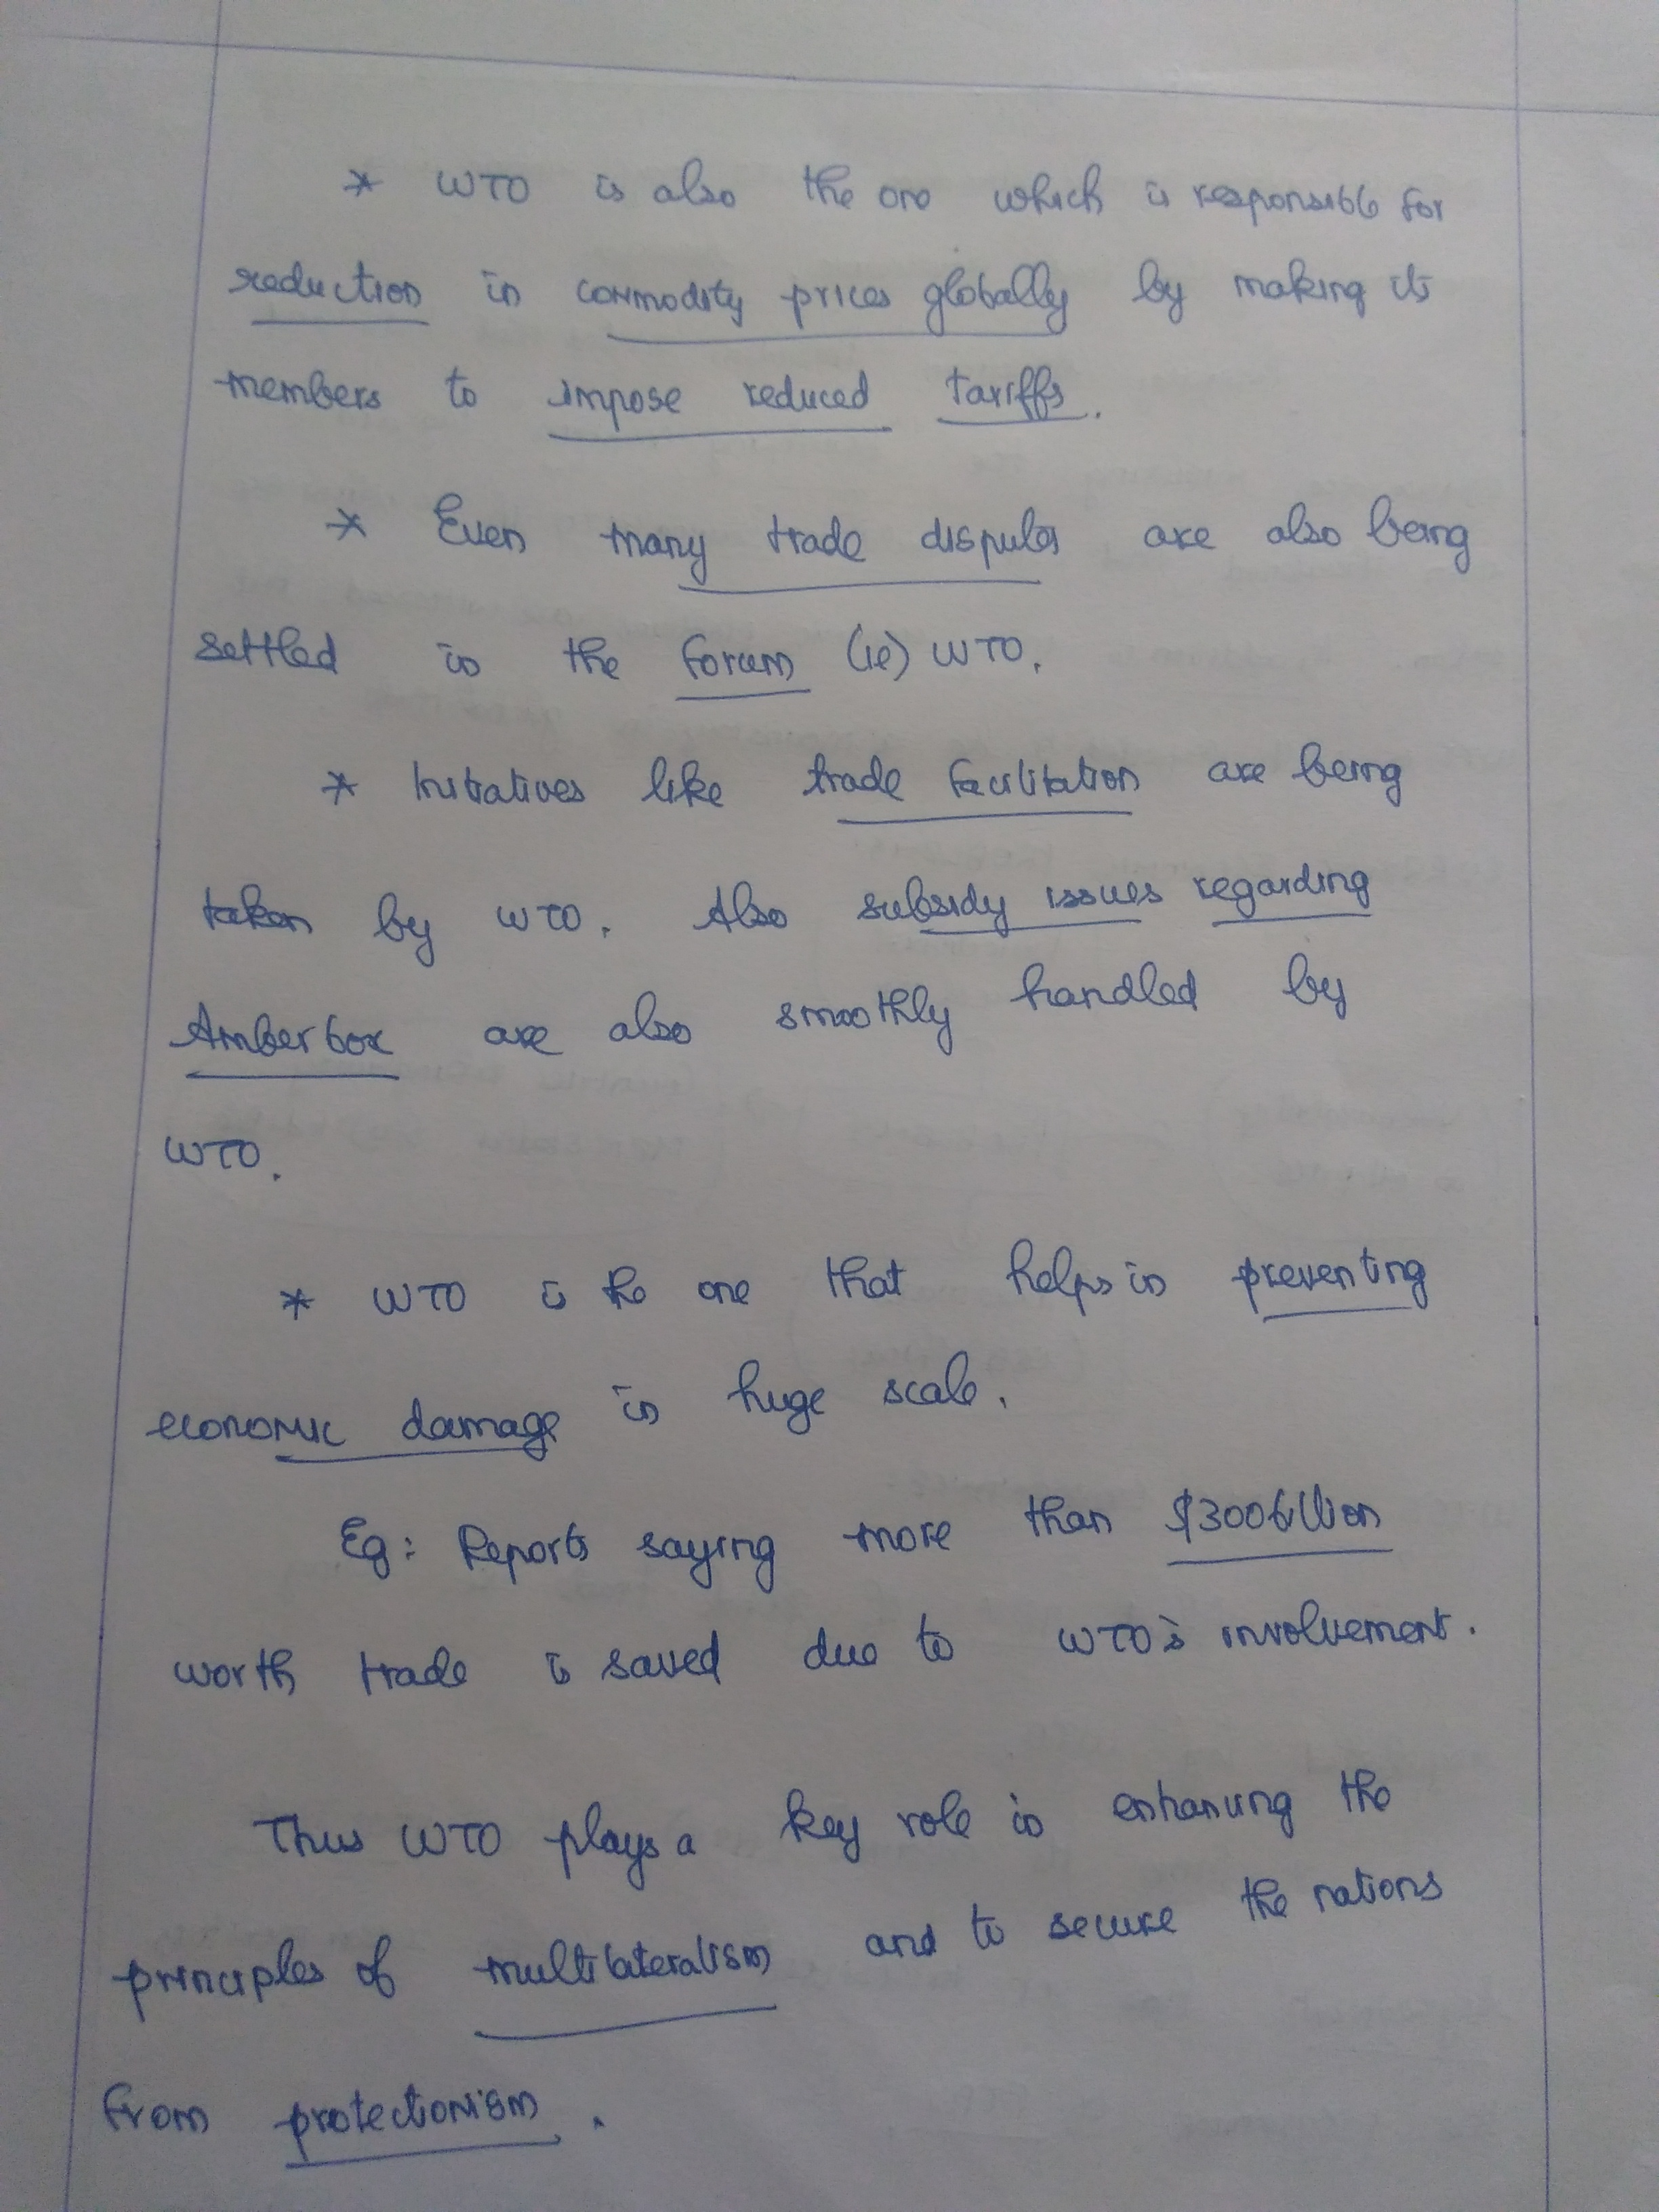 * WTO is also the one which is responsible for
reduction in commodity prices globally by making its
members to impose reduced tariffs.
* Even many trade disputes are also being
settled in the forum (ie) WTO.
* Initiatives like trade facilitation are being
taken by WTO. Also subsidy issues regarding
Amber box are also smoothly handled by
WTO.
* WTO is the one that helps in preventing
economic damage in huge scale.
Eg: Reports saying more than $300 billion
worth trade is saved due to WTO's involvement.
Thus WTO plays a key role in enhancing the
principles of multilateralism and to secure the nations
from protectionism.